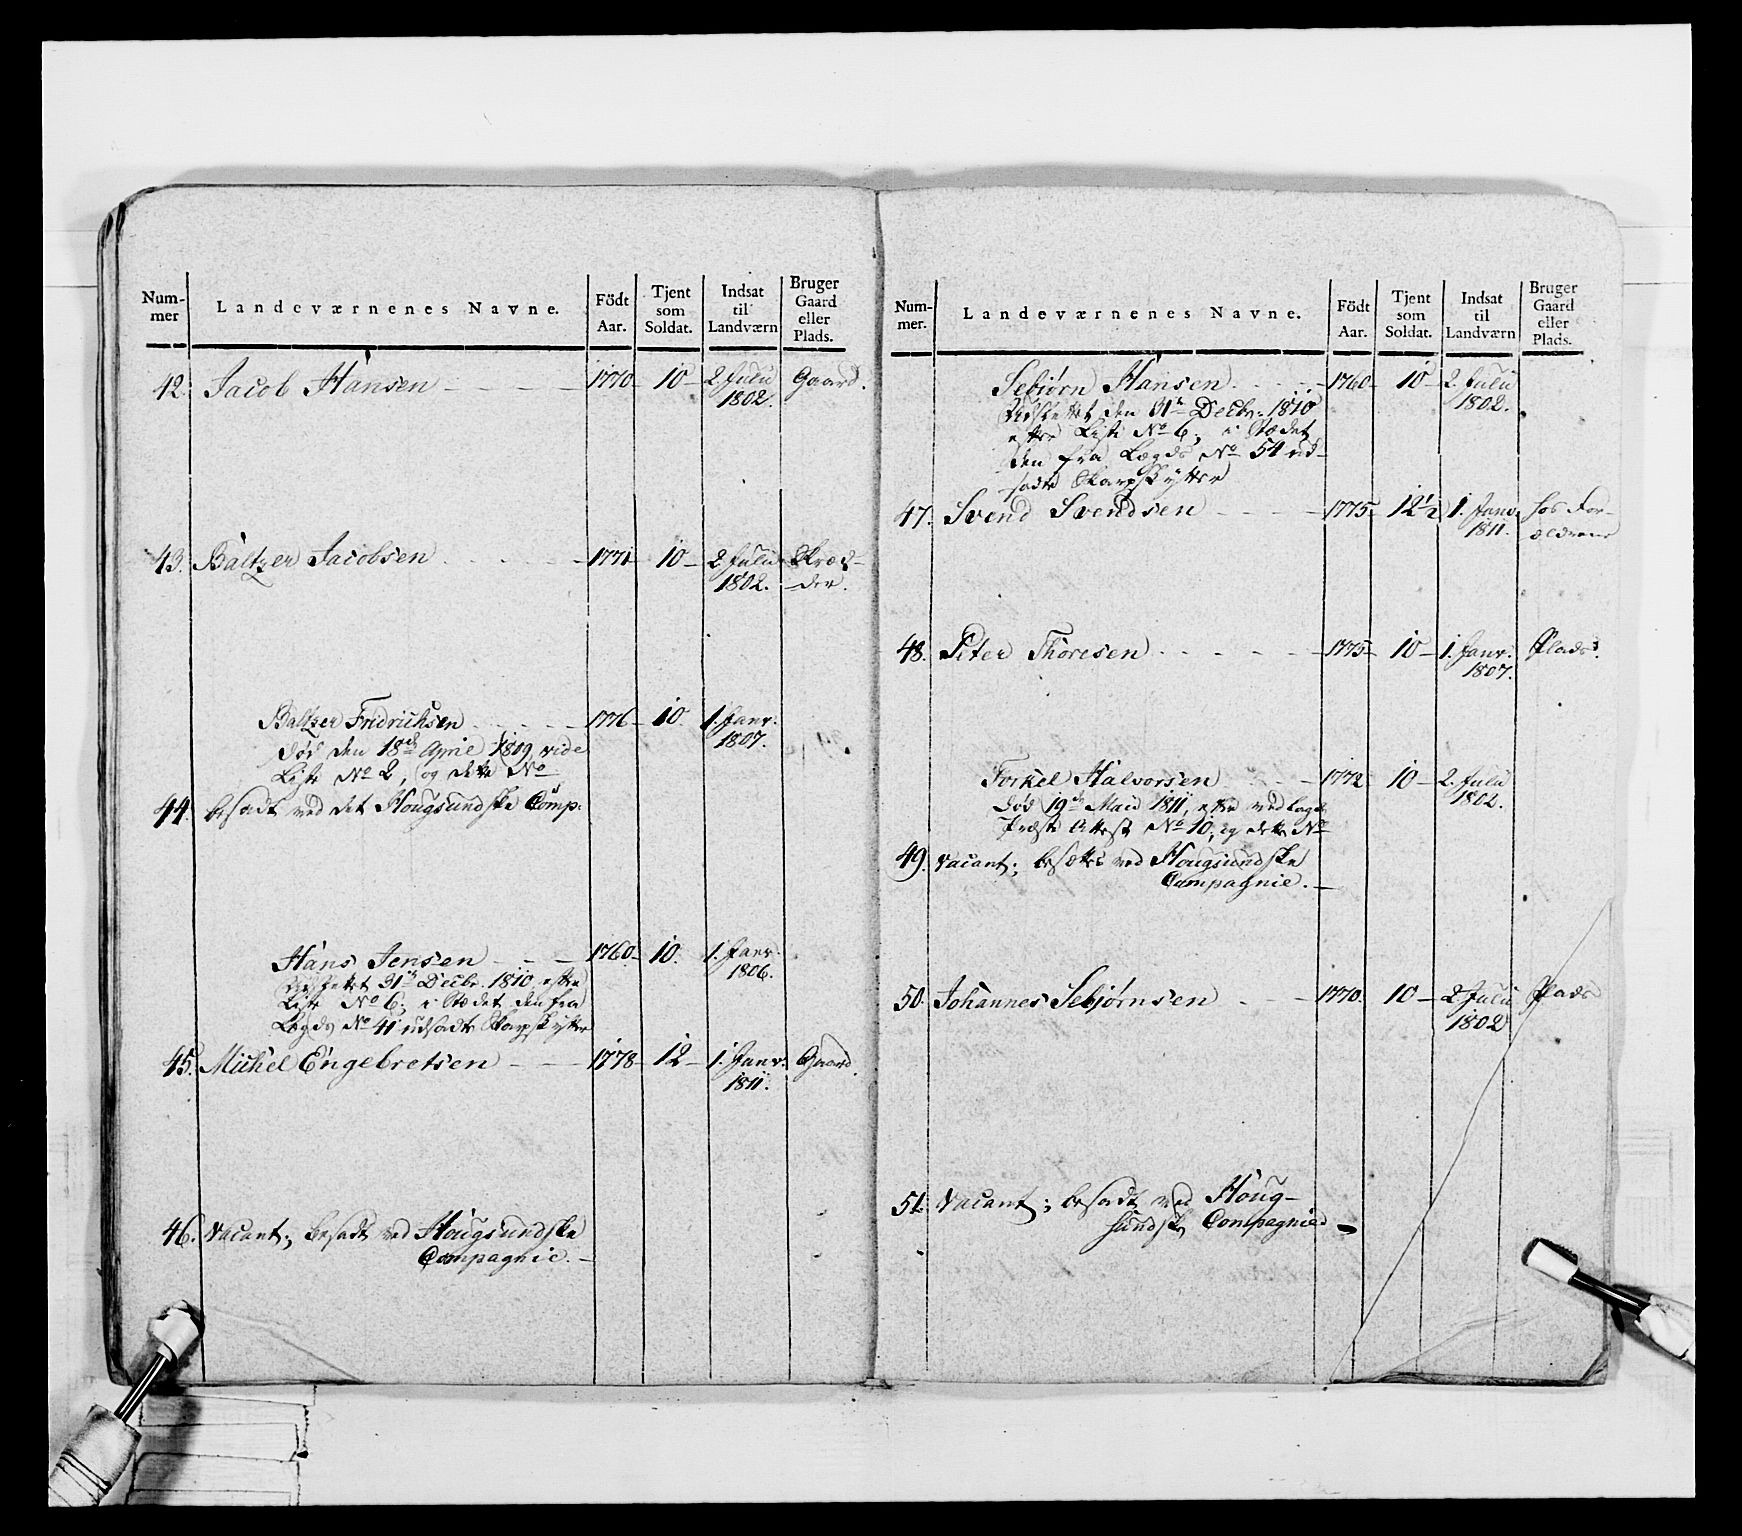 Num-
mer
Landeværnenes Navne.
Födt
Aar.
Tjent
som
Soldat.
Indsat
til
Landværn
Bruger
Gaard
eller
Plads.
42. Jacob Hansen - - - - 1770 10 - 2 Julii Gaard.
1802.
43. Baltzer Jacobsen - - - - 1771 10 - 2 Julii Skræd-
1802. der.
Baltzer Fridrichsen - - - - 1776 10 1. Janr.
1807.
Død den 18de April 1809 vide
Liste No 2, og dette No
44. besadt ved det Hougsundske Comp:
Hans Jensen - - - 1760 10. 1. Janr.
1806.
Udsættet 31te Decbr. 1810 efter
Liste No 6; i Stædet den fra
Lægds No 41 udsadte Skarpskytter
45. Michel Engebretsen - - - 1778 12 - 1. Janr. Gaard.
1811.
46. Vacant; besadt ved Hougsundske
Compagnie. -
Num-
mer.
Landeværnenes Navne.
Födt
Aar.
Tjent
som
Soldat.
Indsat
til
Landværn
Bruger
Gaard
eller
Plads.
Sebjørn Hansen - - - - 1760 10 - 2 Julii
1802.
Udsættet den 31te Decbr. 1810
efter Liste No 6; i Stædet
den fra Lægds No 54 ud-
sadte Skarpskytter
47. Svend Svendsen - - - - 1775 12 1/2 1. Janr. hos For-
1811. ældrene
48. Peter Thoresen - - - - 1775 10 - 1. Janr. Plads.
1807.
Torkel Halvorsen - - - 1772 10 - 2. Julii
1802.
Død 19de Maii 1811, efter vedlagde
Præste Attest No 10, og dette No
49. vacant; besættes ved Hougsundske
Compagnie. -
50. Johannes Sebjørnsen - - 1770. 10 - 2 Julii Plads
1802
51. Vacant; besadt ved Houg-
sundske Compagnie -